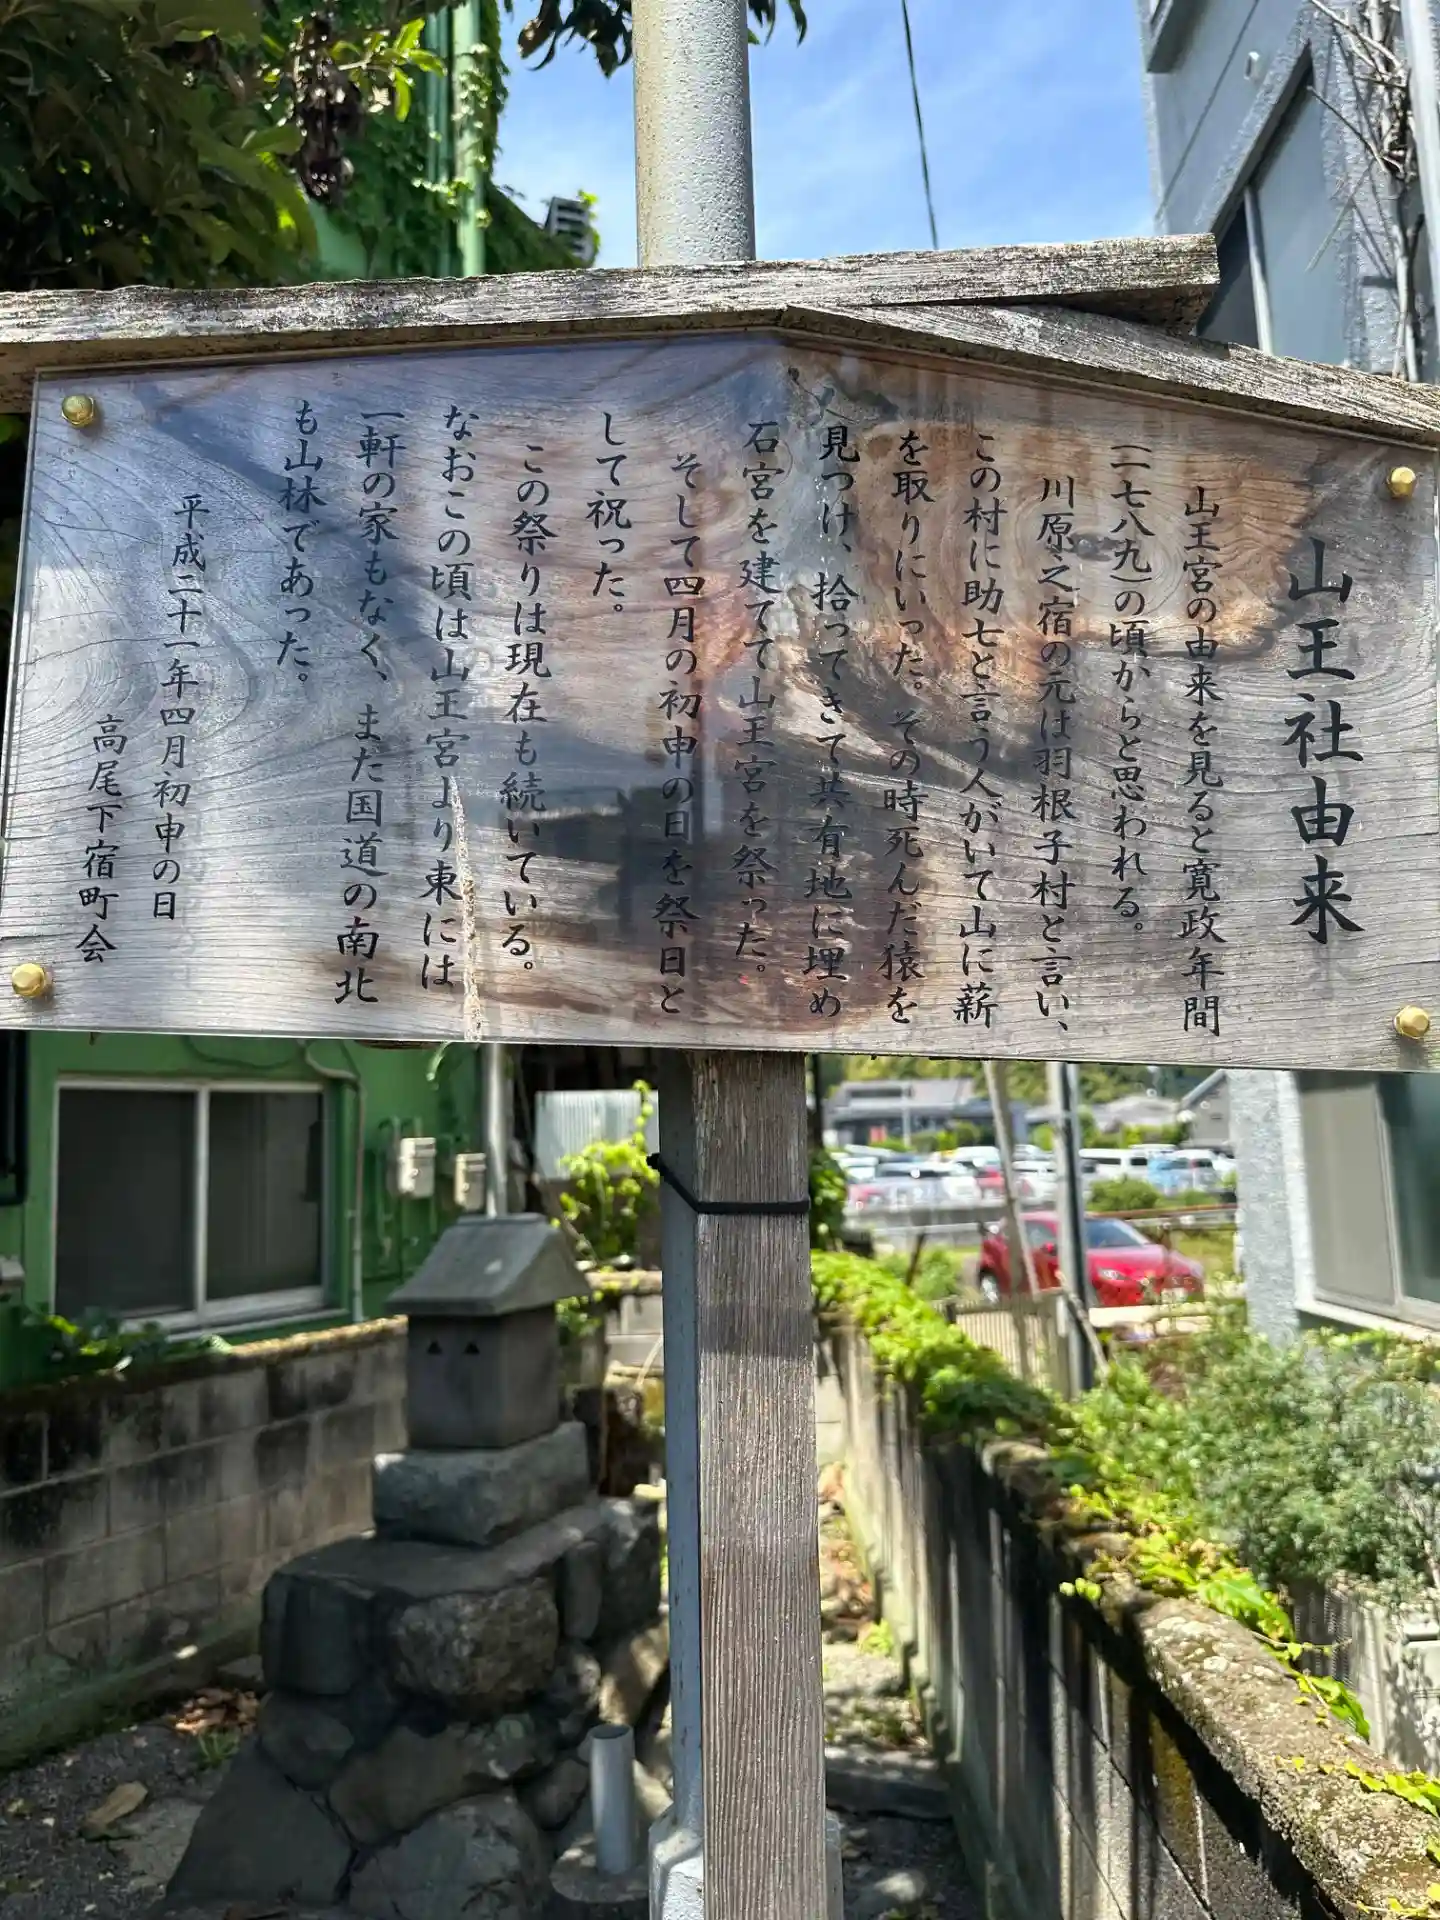 山王社由来
山王宮の由来を見ると寛政年間
(一七八九)の頃からと思われる。
川原之宿の元は羽根子村と言い、
この村に助七と言う人がいて山に薪
を取りにいった。その時死んだ猿を
見つけ、拾ってきて共有地に埋め
石宮を建てて山王宮を祭った。
そして四月の初申の日を祭日と
して祝った。
この祭りは現在も続いている。
なおこの頃は山王宮より東には
一軒の家もなく、また国道の南北
も山林であった。
平成二十一年四月初申の日
高尾下宿町会